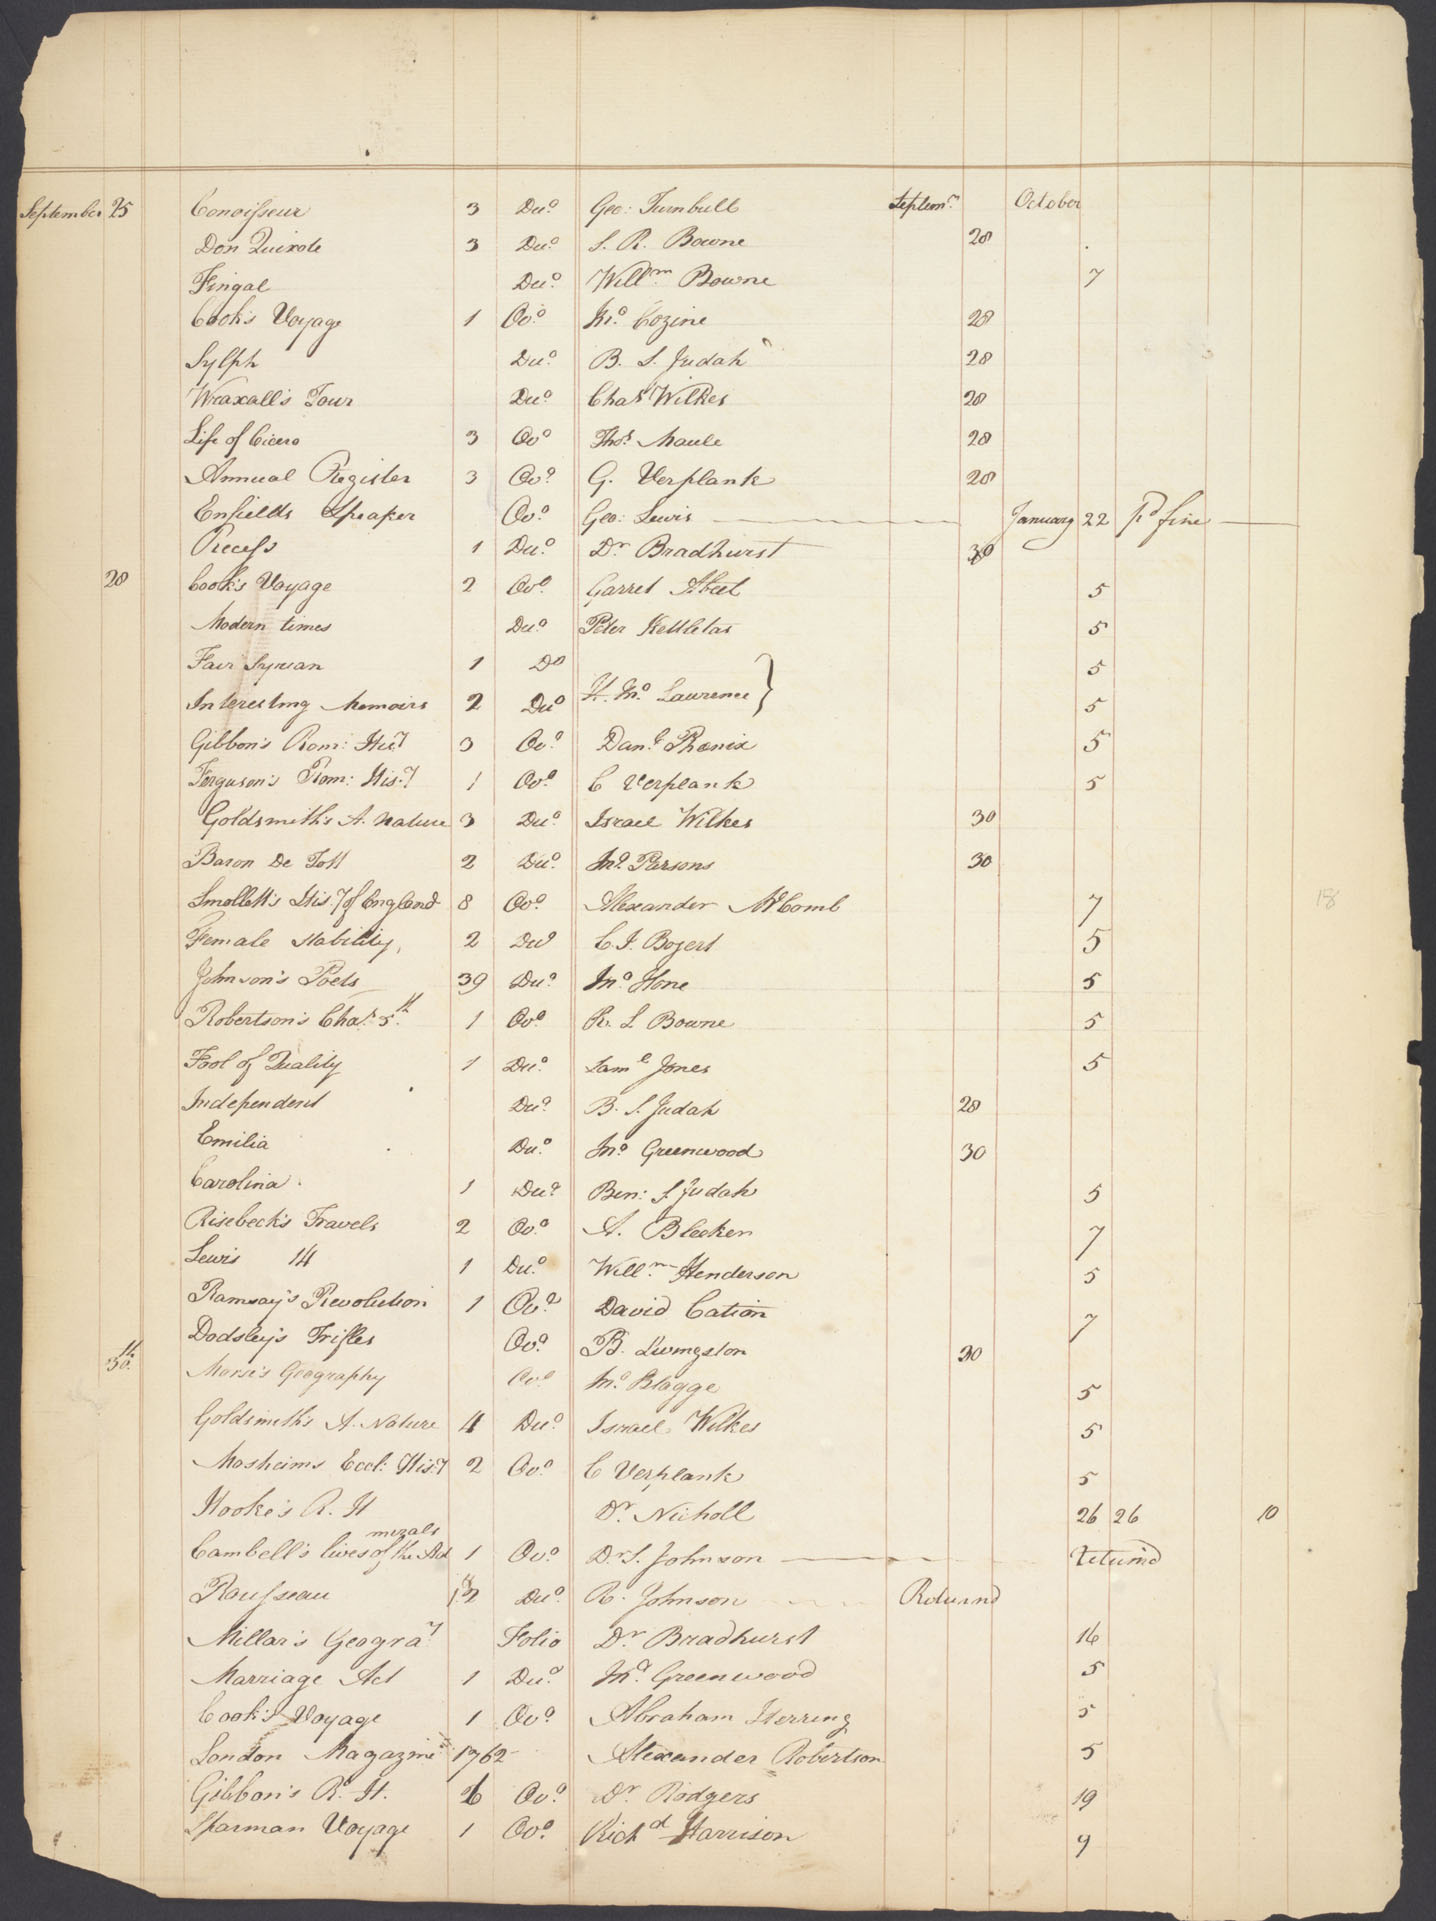 September 25 Conoisseur 3 Duo. Geo: Turnbull Septemr. October
Don Quixote 3 Duo. S. R. Bowne 28
Fingal Duo. Willm. Bowne 7
Cook's Voyage 1 Ovo. Jno. Cozine 28
Sylph Duo. B. S. Judah 28
Wraxall's Tour Duo. Chas. Wilkes 28
Life of Cicero 3 Ovo Thos. Maule 28
Annual Register 3 Ovo. G. Verplank 28
Enfields Speaker Ovo. Geo: Lewis January 22 pd fine
Recess 1 Duo. Dr Bradhurst 30
28 Cook's Voyage 2 Ovo. Garret Abeel 5
Modern times Duo. Peter Kettletas 5
Fair Syrian 1 Do 5
Interesting Memoirs 2 Duo Jno Lawrence } 5
Gibbon's Rom: Hisy 3 Ovo. Danl. Phœnix 5
Ferguson's Rom: Hisy 1 Ovo. C Verplank 5
Goldsmith's A. Nature 3 Duo. Israel Wilkes 30
Baron De Tott 2 Duo. Jno. Parsons 30
Smollett's Hisy of England 8 Ovo. Alexander McComb 7
Female Stability, 2 Duo C. J. Bogert 5
Johnson's Poets 39 Duo. Jno Hone 5
Robertson's Chas. 5th. 1 Ovo R. L Bowne 5
Fool of Quality 1 Duo. Saml Jones 5
Independent Duo. B. S. Judah 28
Emilia Duo. Jno. Greenwood 30
Carolina 1 Duo. Ben: S Judah 5
Risebeck's Travels 2 Ovo. A. Bleeker 7
Lewis 14 1 Duo. Willm. Henderson 5
Ramsay's Revolution 1 Ovo. David Cation 7
Dodsley's Trifles Ovo. B. Livingston 30
30th. Morse's Geography Ovo Jno. Blagge 5
Goldsmith's A. Nature 4 Duo. Israel Wilkes 5
Mosheims Eccl: Hisy 2 Ovo. C Verplank 5
Hooke's R. H Dr. Nicholl 26 26 10
Cambell's lives of the Ad mirals 1 Ovo. Dr. S. Johnson returnd
Rousseau 2 Duo. R. Johnson Returnd
Millar's Geogray Folio Dr Bradhurst 16
Marriage Act 1 Duo. Jno Greenwood 5
Cook's Voyage 1 Ovo. Abraham Herring 5
London Magazine 1762 Alexander Robertson 5
Gibbon's R. H. 6 Ovo. Dr Rodgers 19
Sparman Voyage 1 Ovo. Richd Harrison 9
18